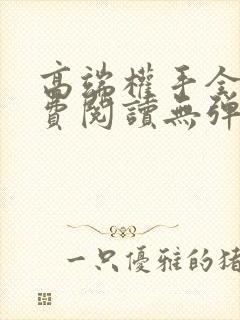 高端權手全
費閱讀無彈
一只優雅的猪